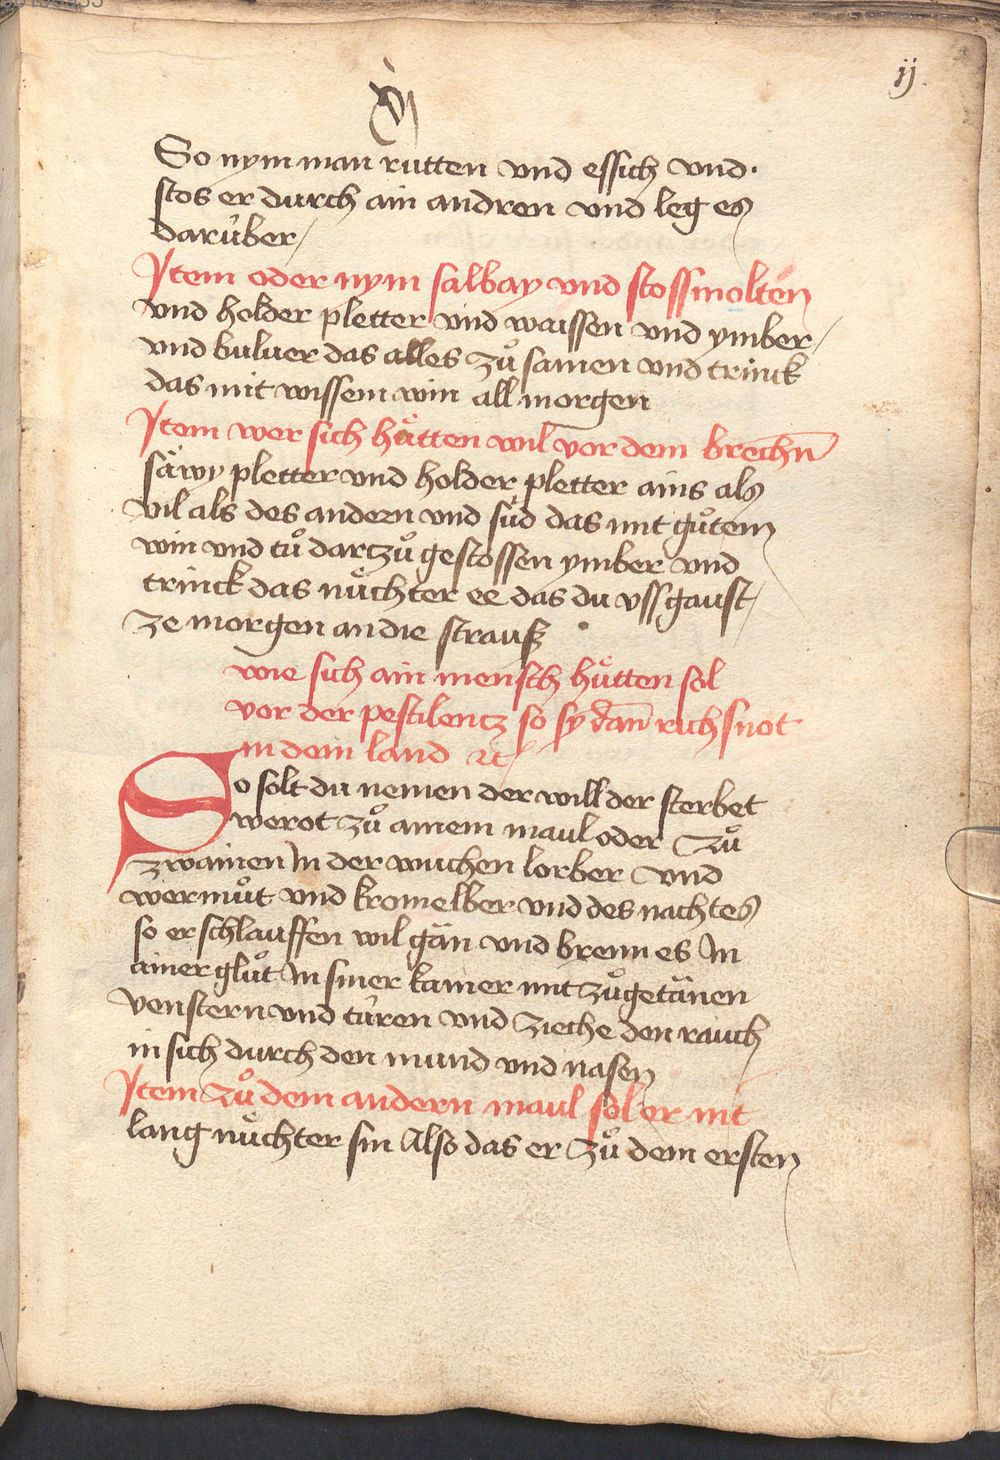 ij.
So nym man rutten vnd essich vnd·
stos er durch ain andren vnd leg es
darüber/
Item oder nym salbay vnd stossmolten
vnd holder pletter vnd waissen vnd ymber/
vnd buluer das alles zů samen vnd trinck
das mit wissem win all morgen
Item wer sich hütten wil vor dem brechn̄
säwy pletter vnd holder pletter ains als
vil als des andern vnd süd das mit gůtem
win vnd tů dartzů gestossen ymber vnd
trinck das nüchter ee das du vssgaust/
ze morgen an die strauß
wie sich ain mensch hütten sol
vor der pestilentz so sy dan̄ richsnot
in dem land ꝛc
So solt du nemen der will der sterbet
werot zů ainem maul oder zů
zwainen In der wuchen lorber vnd
wermůt vnd kromelber vnd des nachtes
so er schlauffen wil gän vnd brenn es In
ainer glůt In siner kamer mit zůgetänen
venstern vnd türen vnd zieche den rauch
in sich durch den mund vnd nasen
Item zů dem andern maul sol er nit
lang nüchter sin Also das er zů dem ersten